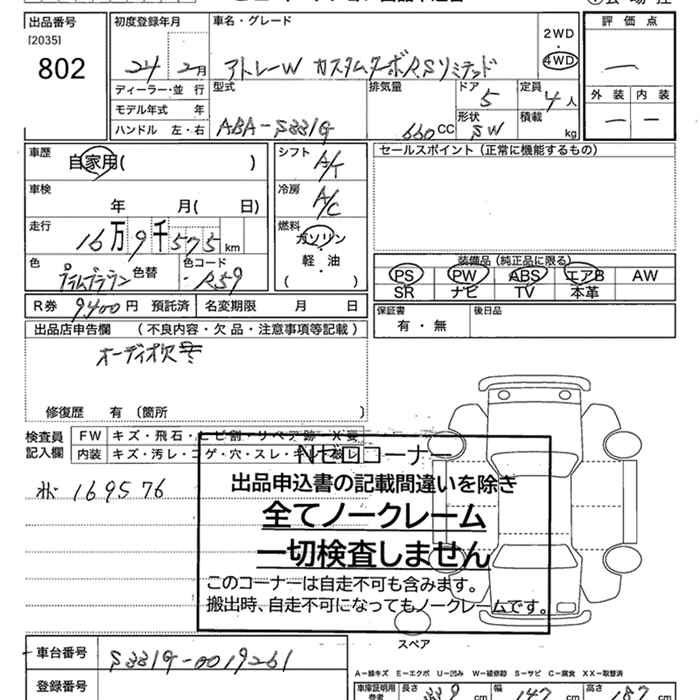 出品番号
[2035]
802
初度登録年月
24 2月
車名・グレード
アトレーW カスタムターボRSリミテッド
2WD
4WD
評価点
ー
外装 内装
ー ー
ディーラー・並行
モデル年式 年
ハンドル 左・右
型式
ABA-S331G
排気量
660cc
ドア
5
形状
SW
定員
4人
積載
kg
車歴
自家用( )
車検
年 月( 日)
走行
16万9千575km
色
プラムブラウン
色替
色コード
R59
シフト
A/T
冷房
A/C
燃料
ガソリン
軽・油
( )
セールスポイント(正常に機能するもの)
装備品(純正品に限る)
PS PW ABS エアB AW
SR ナビ TV 本革
R券 9,400円 預託済 名変期限 月 日
保証書
有・無
後日品
出品店申告欄 (不良内容・欠品・注意事項等記載)
オーディオ欠品
修復歴 有 〔箇所 〕
検査員
記入欄
FW キズ・飛石・ヒビ割・リペア跡・X要
内装 キズ・汚レ・コゲ・穴・スレ・
169576
Nゼロコーナー
出品申込書の記載間違いを除き
全てノークレーム
一切検査しません
このコーナーは自走不可も含みます。
搬出時、自走不可になってもノークレームです。
スペア
車台番号
S331G-0019261
登録番号
A-線キズ E-エクボ U-凹み W-補修跡 S-サビ C-腐食 XX-取替済
車庫証明用
参考
長さ 339cm
幅 147cm
高さ 187cm